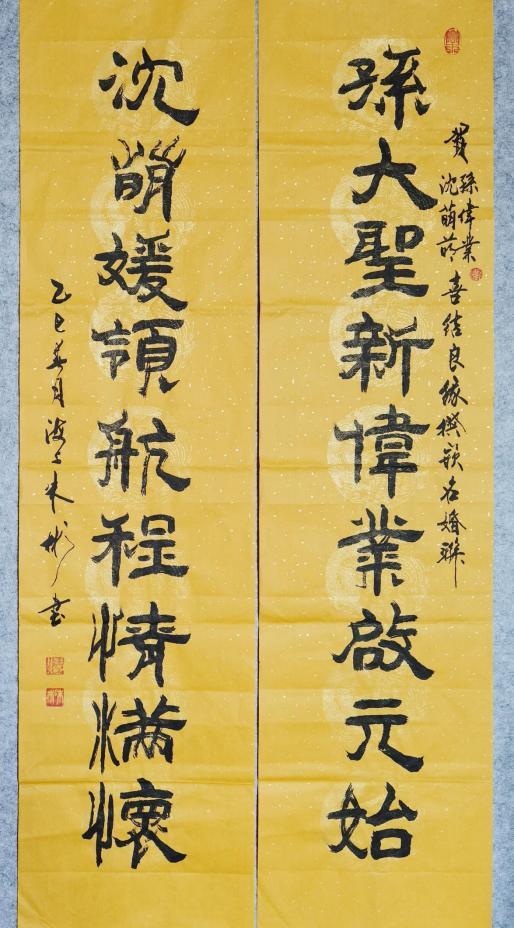 賀
孫偉業
沈萌
喜结良缘撰嵌名婚聯
孫大聖新偉業啟元始
沈萌媛領航程情滿懷
乙巳 月 朱彬書